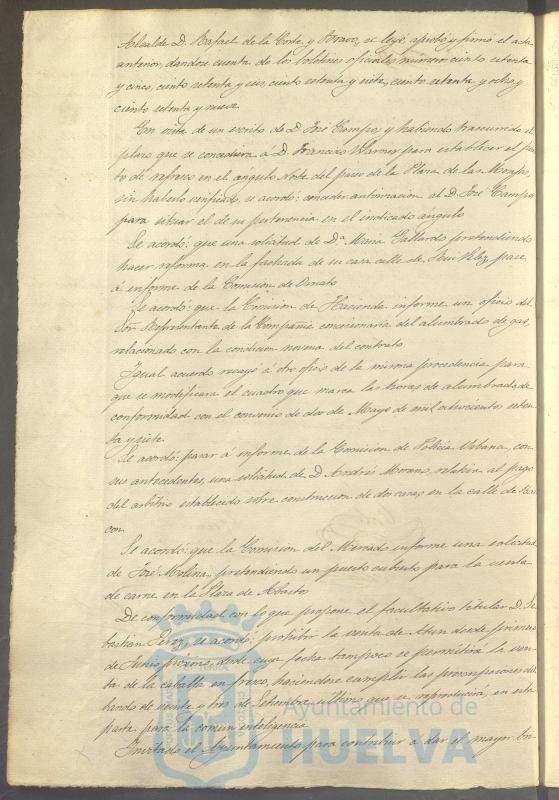 Alcalde D. Rafael de la Corte y Bravo, se leyó, aprobó y firmó el acta
anterior, dandose cuenta de los boletines oficiales números ciento setenta
y cinco, ciento setenta y seis, ciento setenta y siete, ciento setenta y ocho y
ciento setenta y nueve.
En vista de un escrito de D. José Campos y habiendo trascurrido el
plazo que se concediera á D. Francisco para establecer el pues
to de refrescos en el angulo Norte del paseo de la Plaza de las Monjas,
sin haberlo verificado, se acordó: conceder autorizacion al D. José Campos
para situar el de su pertenencia en el indicado angulo.
Se acordó: que una solicitud de Dª Maria Gallardo pretendiendo
hacer reforma en la fachada de su casa calle de Velez pase
á informe de la Comision de Ornato.
Se acordó: que la Comision de Hacienda informe un oficio del
Sor. Representante de la Compañia concesionaria del alumbrado de gas,
relacionado con la condicion novena del contrato.
Igual acuerdo recayó á otro oficio de la misma procedencia para
que se modificara el cuadro que marca las horas de alumbrado, de
conformidad con el convenio de dos de Mayo de mil ochocientos seten
ta y siete.
Se acordó: pasar á informe de la Comision de Policia Urbana, con
sus antecedentes, una solicitud de D. Andrés Morano, relativa al pago
del arbitrio establecido sobre construccion de dos casas en la calle de
con.
Se acordó: que la Comision del Mercado informe una solicitud
de José Molina, pretendiendo un puesto cubierto para la venta
de carne en la Plaza de Abasto.
De conformidad con lo que propone el facultativo titular D. Se
bastian Perez, se acordó: prohibir la venta de Atun desde primero
de Junio próximo, desde cuya fecha tampoco se permitirá la ven
ta de la caballa en fresco, haciendose cumplir las prevenciones del
bando de veinte y tres de Setiembre último que se reproducirá, en esta
parte, para la comun inteligencia.
Invitado el Ayuntamiento para contribuir á dar el mayor bri-
Ayuntamiento de
HUELVA